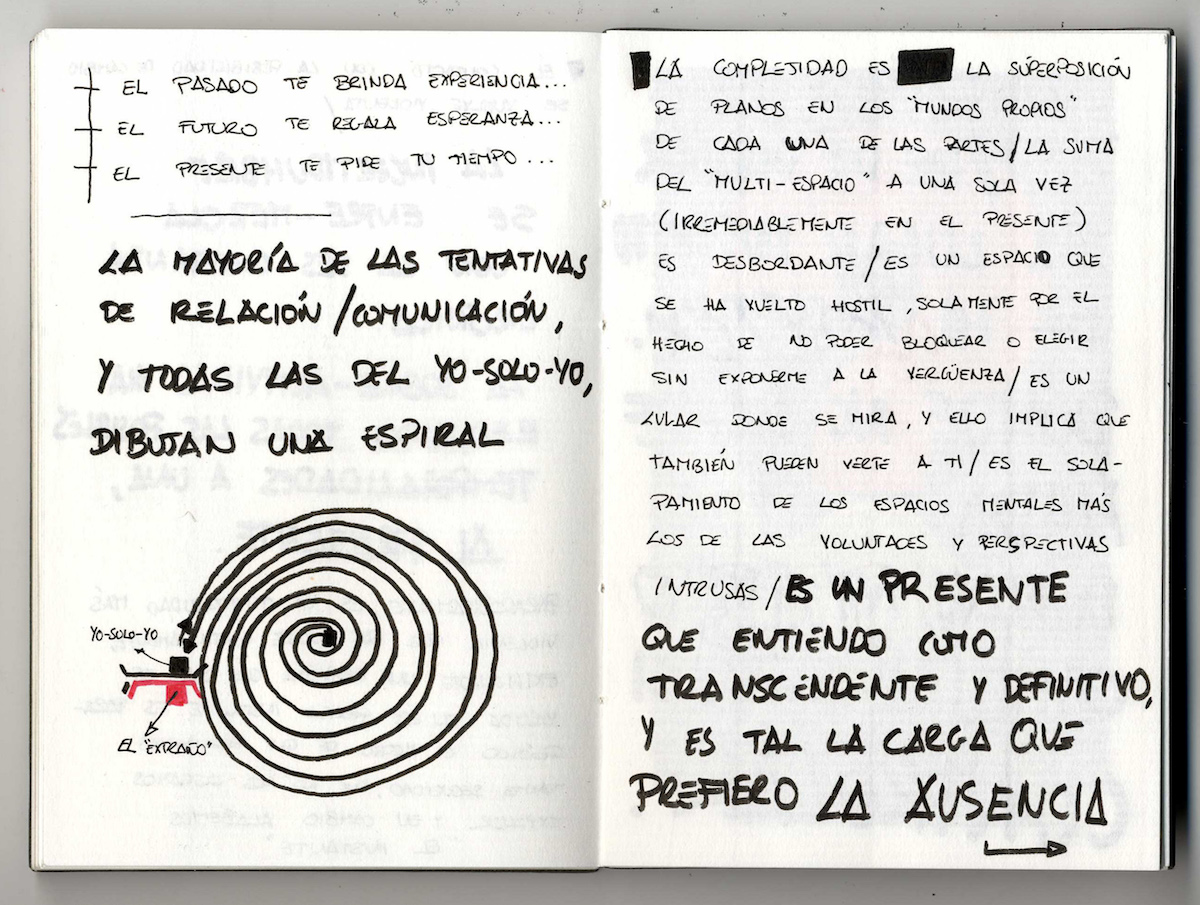 EL PASADO TE BRINDA EXPERIENCIA...
EL FUTURO TE REGALA ESPERANZA...
EL PRESENTE TE PIDE TU TIEMPO...
LA MAYORÍA DE LAS TENTATIVAS
DE RELACIÓN/COMUNICACIÓN,
Y TODAS LAS DEL YO-SOLO-YO,
DIBUJAN UNA ESPIRAL
YO-SOLO-YO
EL "EXTRAÑO"
LA COMPLEJIDAD ES LA SUPERPOSICIÓN
DE PLANOS EN LOS "MUNDOS PROPIOS"
DE CADA UNA DE LAS PARTES/LA SUMA
DEL "MULTI-ESPACIO" A UNA SOLA VEZ
(IRREMEDIABLEMENTE EN EL PRESENTE)
ES DESBORDANTE/ES UN ESPACIO QUE
SE HA VUELTO HOSTIL, SOLAMENTE POR EL
HECHO DE NO PODER BLOQUEAR O ELEGIR
SIN EXPONERME A LA VERGÜENZA/ES UN
LUGAR DONDE SE MIRA, Y ELLO IMPLICA QUE
TAMBIÉN PUEDEN VERTE A TI/ES EL SOLA-
PAMIENTO DE LOS ESPACIOS MENTALES MÁS
LOS DE LAS VOLUNTADES Y PERSPECTIVAS
INTRUSAS/ES UN PRESENTE
QUE ENTIENDO COMO
TRANSCENDENTE Y DEFINITIVO,
Y ES TAL LA CARGA QUE
PREFIERO LA AUSENCIA